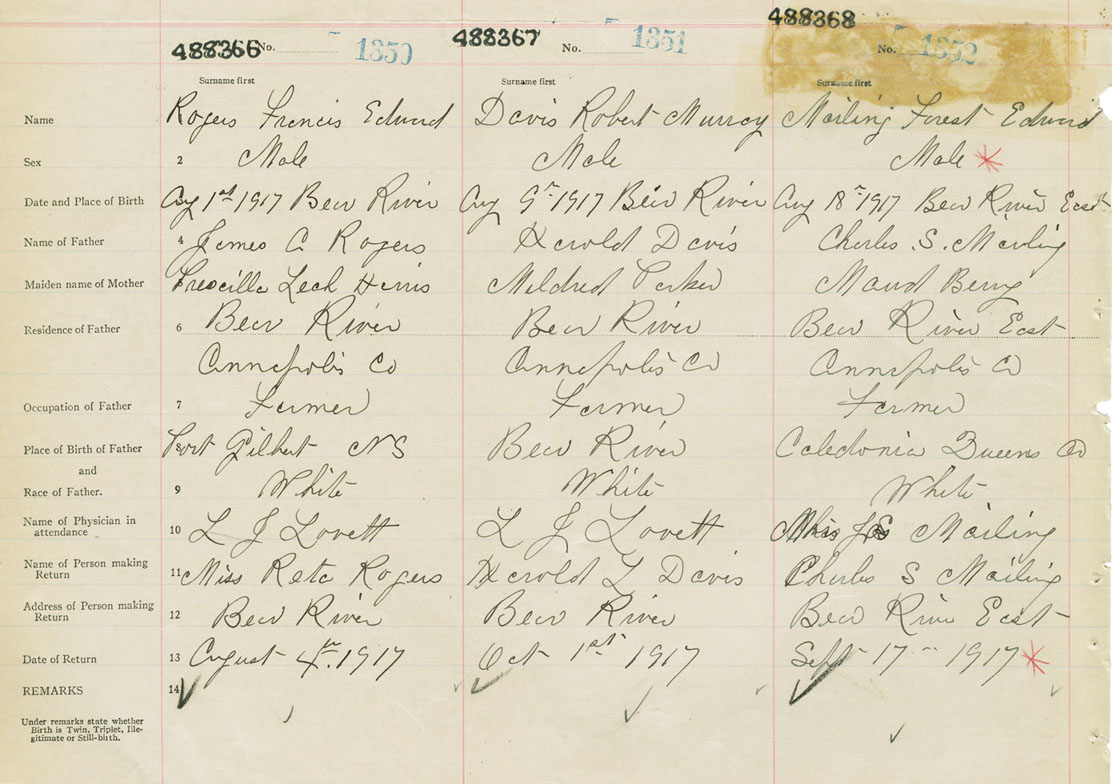 488366 No. 1350 488367 No. 1351 488368 No. 1352
Surname first Surname first Surname first
Name Rogers Francis Edward Davis Robert Murray Mailing Forest Edward
Sex 2 Male Male Male *
Date and Place of Birth Aug 1st 1917 Bear River Aug 9th 1917 Bear River Aug 18th 1917 Bear River East
Name of Father 4 James A Rogers Harold Davis Charles . S. Mailing
Maiden name of Mother Leah Harris Mildred Parker Maud Berry
Residence of Father 6 Bear River Bear River Bear River East
Annapolis Co Annapolis Co Annapolis Co
Occupation of Father 7 Farmer Farmer Farmer
Place of Birth of Father 8 Port Gilbert NS Bear River Caledonia Queens Co
and
Race of Father. 9 White White White
Name of Physician in
attendance 10 L J Lovett L J Lovett Mailing
Name of Person making
Return 11 Miss Reta Rogers Harold L Davis Charles S Mailing
Address of Person making
Return 12 Bear River Bear River Bear River East
Date of Return 13 August 4th. 1917 Oct 1st 1917 Sept 17th 1917 *
REMARKS 14
Under remarks state whether
Birth is Twin, Triplet, Ille-
gitimate or Still-birth.